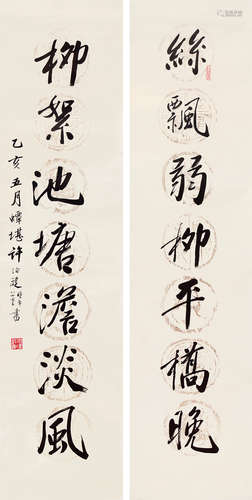 絲飄弱柳平橋晚
柳絮池塘澹淡風
乙亥五月蟫堪許伯建書